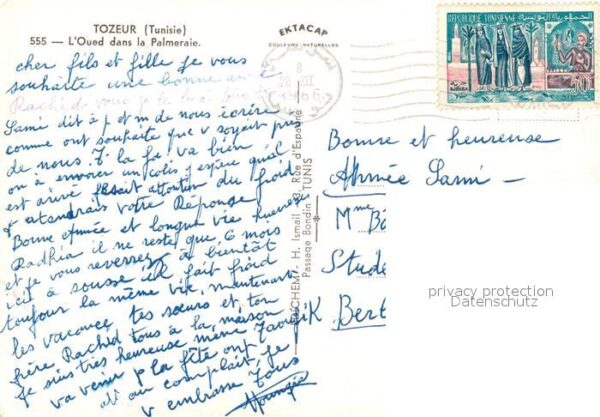 TOZEUR (Tunisie)
555 — L'Oued dans la Palmeraie.
EKTACAP
COULEURS NATURELLES
REPUBLIQUE TUNISIENNE
cher fils et fille je vous
souhaite une bonne année
Rachid vous
Sami dit à p et m de nous écrire
comme ont souhaite que v soyait près
de nous. la va bien
on à envoyer un colis j'espère qu'il
est arivé faisait attention du froid
attendrais votre Réponse
Bonne année et longue vie heureuse
Radhia il ne reste que 6 mois
et je vous reverrez à bientôt
ici à sousse il fait froid
toujour la même vie, maintenant
les vacances tes sœurs et ton
frère Rachid tous à la maison
je suis très heureuse même
va venir p la fête ont
au complait, je
v embrasse Tous
Bonne et heureuse
Année Sami —
Mme
Stude
Bert
H. Ismail - 43, Rue d'Espagne
Passage Bondin - TUNIS
privacy protection
Datenschutz